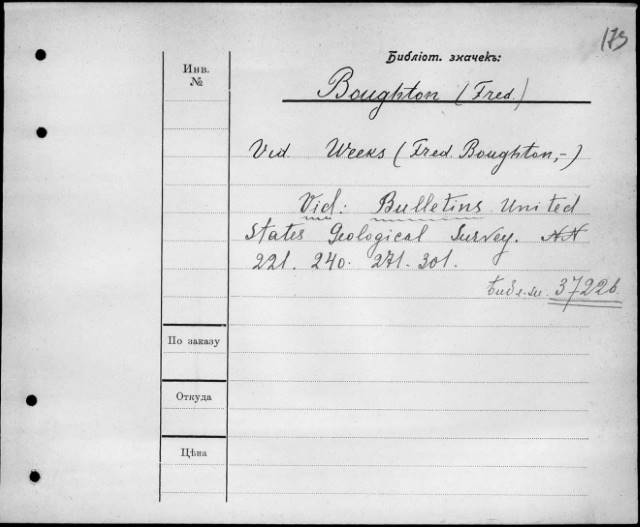 173
Библіот. значекъ:
Инв.
№
Boughton (Fred.)
Vid. Weeks (Fred. Boughton,-)
Vid: Bulletins United
States Geological Survey. NN
221. 240. 271. 301.
37226
По заказу
Откуда
Цѣна